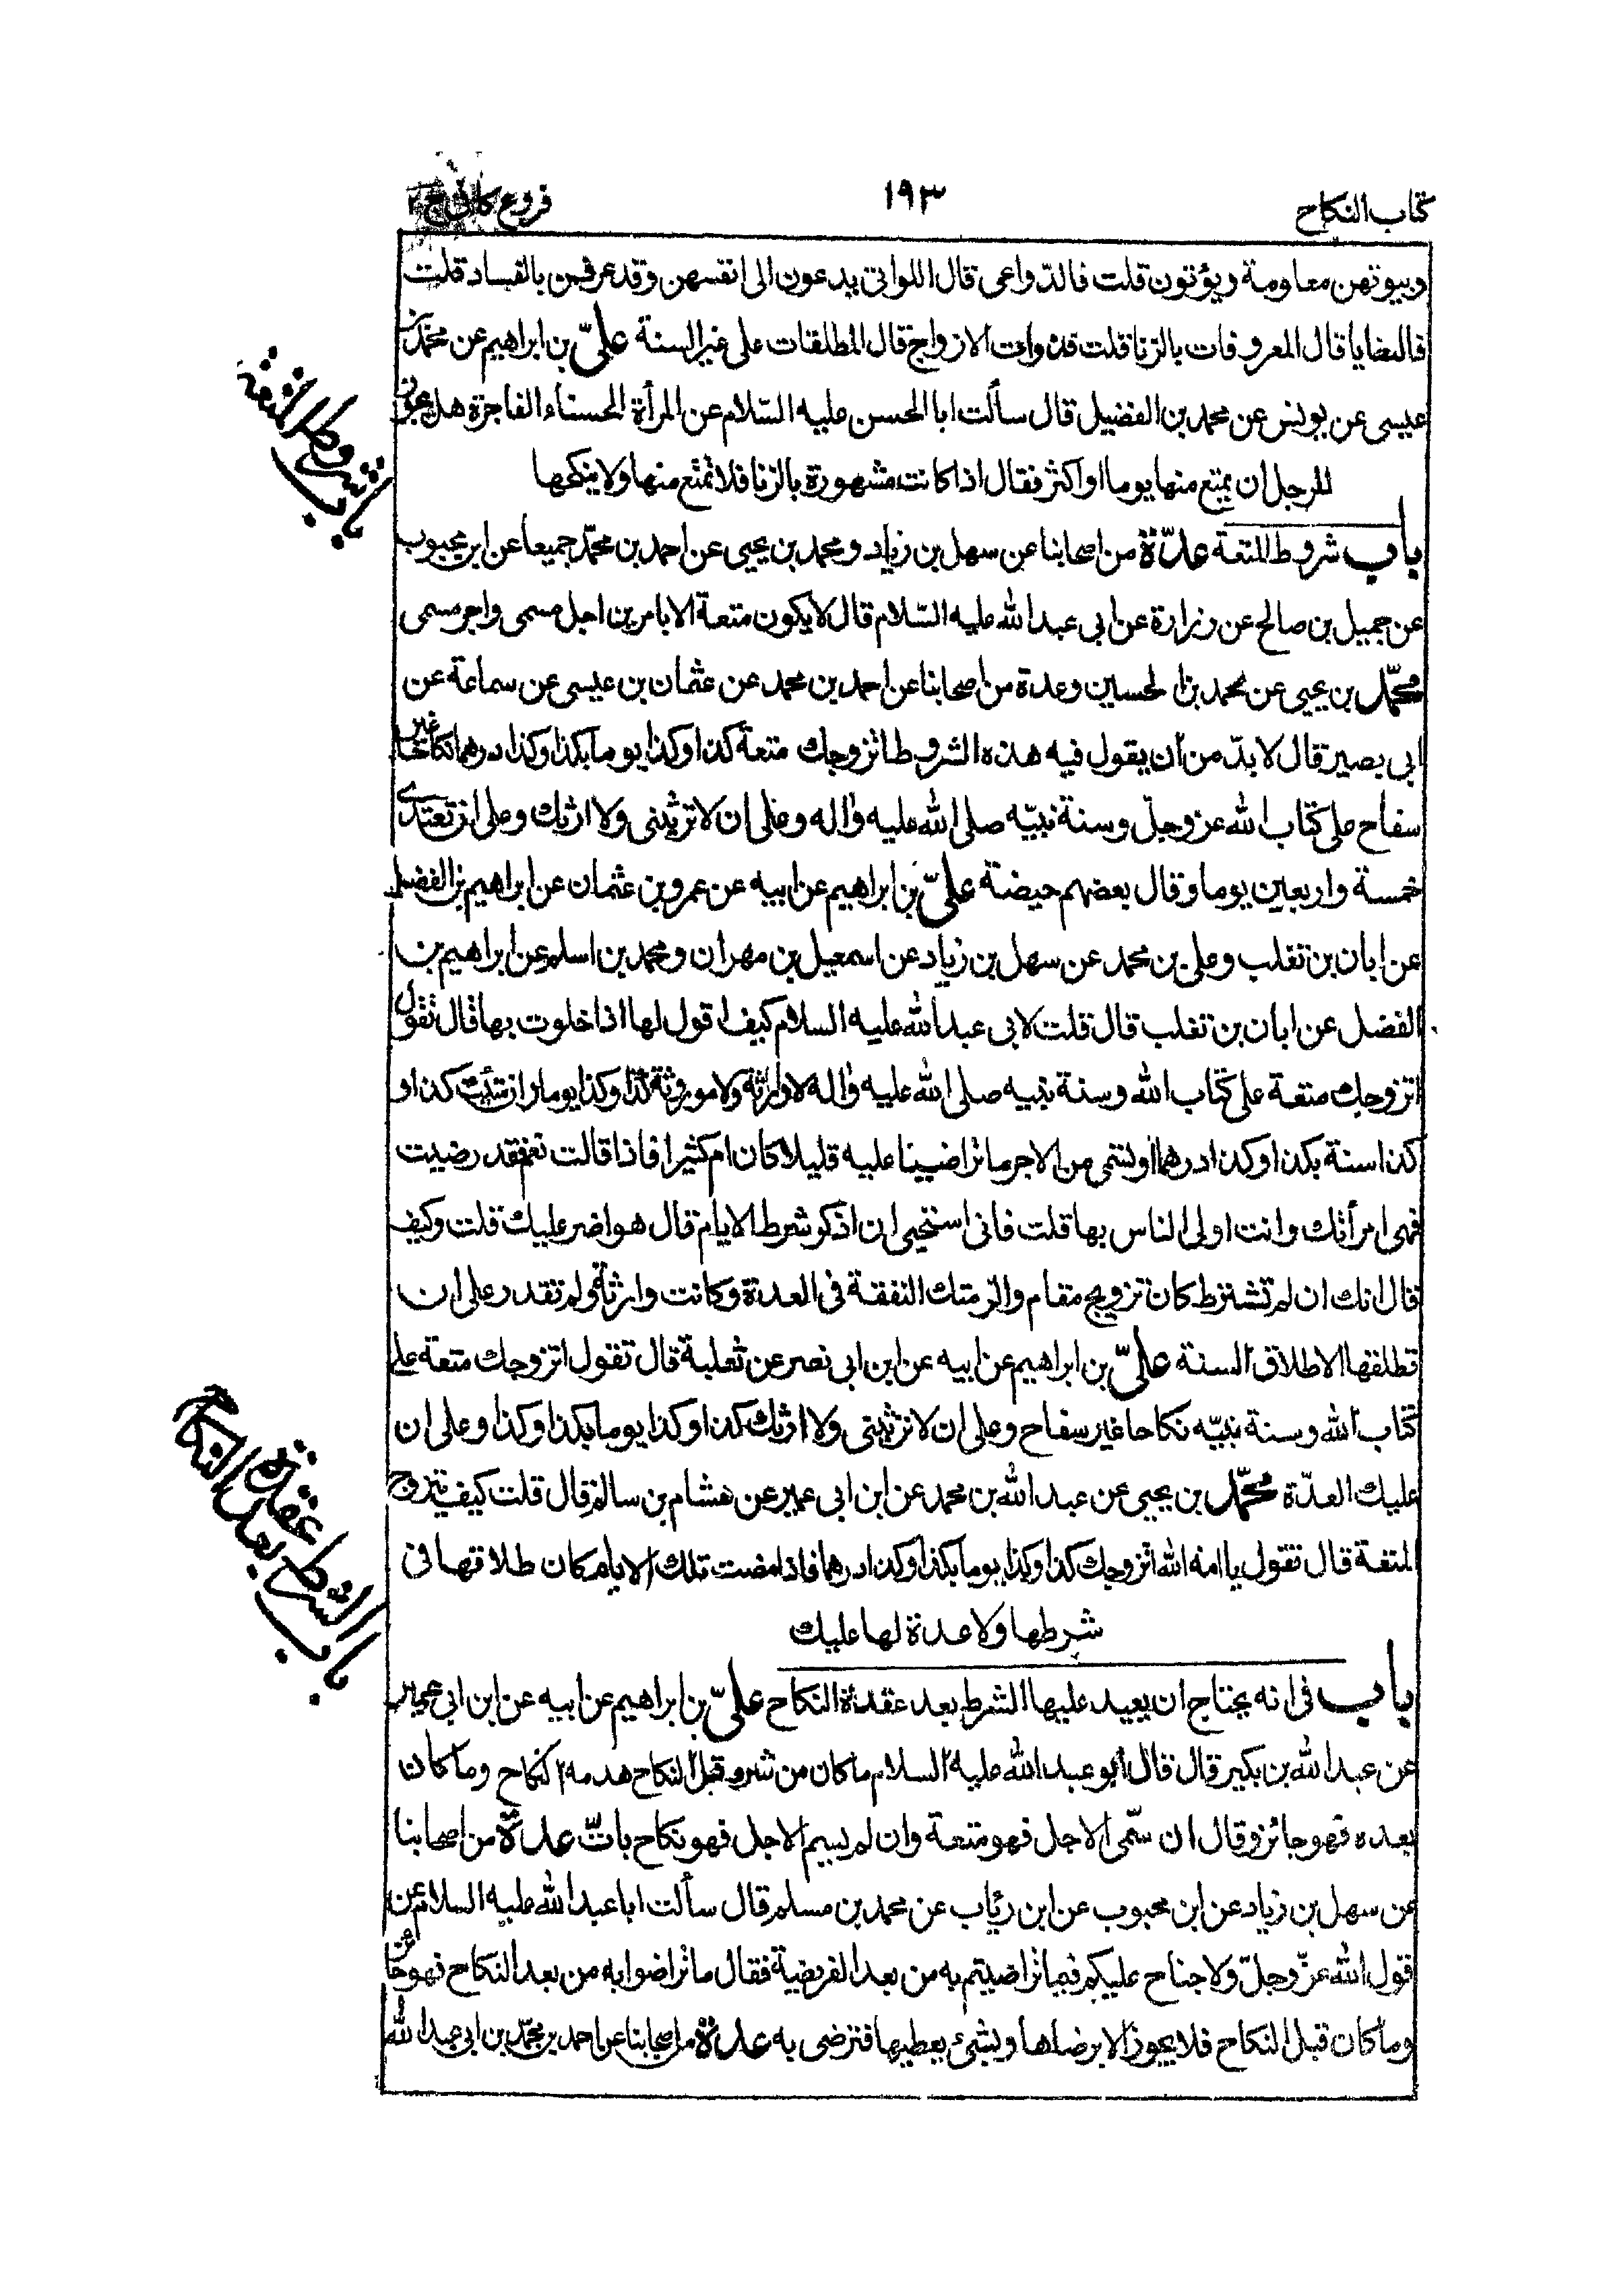 كتاب النكاح
١٩٣
فروع كافي ج ٢
وبيوتهن معلومة ويؤتون قلت فالدواعى قال اللواتى يدعون الى انفسهن وقد عرفن بالفساد قلت
فالبغايا قال المعروفات بالزنا قلت فذوات الازواج قال المطلقات على غير السنة علىّ بن ابراهيم عن محمد بن
عيسى عن يونس عن محمد بن الفضيل قال سألت ابا الحسن عليه السّلام عن المرأة الحسناء الفاجرة هل يجوز
للرجل ان يتمتع منها يوما او اكثر فقال اذا كانت مشهورة بالزنا فلا تمتع منها ولا ينكحها
باب شروط المتعة عدّة من اصحابنا عن سهل بن زياد ومحمد بن يحيى عن احمد بن محمّد جميعا عن ابن محبوب
عن جميل بن صالح عن زرارة عن ابى عبد الله عليه السّلام قال لا يكون متعة الا بامرين اجل مسمى واجر مسمى
محمّد بن يحيى عن محمد بن الحسين وعدة من اصحابنا عن احمد بن محمد عن عثمان بن عيسى عن سماعة عن
ابى بصير قال لا بدّ من ان يقول فيه هذه الشروط اتزوجك متعة كذا وكذا يوما بكذا وكذا درهما نكاحا غير
سفاح على كتاب الله عز وجلّ وسنة نبيّه صلى الله عليه واله وعلى ان لا ترثينى ولا ارثك وعلى ان تعتدى
خمسة واربعين يوما وقال بعضهم حيضة علىّ بن ابراهيم عن ابيه عن عمرو بن عثمان عن ابراهيم بن الفضل
عن ابان بن تغلب وعلى بن محمد عن سهل بن زياد عن اسمعيل بن مهران ومحمد بن اسلم عن ابراهيم بن
الفضل عن ابان بن تغلب قال قلت لابى عبد الله عليه السلام كيف اقول لها اذا خلوت بها قال تقول
اتزوجك متعة على كتاب الله وسنة نبيه صلى الله عليه واله لا وارثة ولا موروثة كذا وكذا يوما وان شئت كذا و
كذا سنة بكذا وكذا درهما وتسمى من الاجر ما تراضيتما عليه قليلا كان ام كثيرا فاذا قالت نعم فقد رضيت
فهى امرأتك وانت اولى الناس بها قلت فانى استحيى ان اذكر شرط الايام قال هو اضر عليك قلت وكيف
قال انك ان لم تشترط كان تزويج مقام والزمتك النفقة فى العدة وكانت وارثة ولم تقدر على ان
تطلقها الا طلاق السنة علىّ بن ابراهيم عن ابيه عن ابن ابى نصر عن ثعلبة قال تقول اتزوجك متعة على
كتاب الله وسنة نبيّه نكاحا غير سفاح وعلى ان لا ترثينى ولا ارثك كذا وكذا يوما بكذا وكذا وعلى ان
عليك العدّة محمّد بن يحيى عن عبد الله بن محمد عن ابن ابى عمير عن هشام بن سالم قال قلت كيف يتزوج
المتعة قال تقول يا امة الله اتزوجك كذا وكذا يوما بكذا وكذا درهما فاذا مضت تلك الايام كان طلاقها فى
شرطها ولا عدة لها عليك
باب فى انه يحتاج ان يعيد عليها الشرط بعد عقدة النكاح علىّ بن ابراهيم عن ابيه عن ابن ابى عمير
عن عبد الله بن بكير قال قال ابو عبد الله عليه السلام ما كان من شرط قبل النكاح هدمه النكاح وما كان
بعده فهو جائز وقال ان سمّى الاجل فهو متعة وان لم يسم الاجل فهو نكاح باتّ عدّة من اصحابنا
عن سهل بن زياد عن ابن محبوب عن ابن رئاب عن محمد بن مسلم قال سألت ابا عبد الله عليه السلام عن
قول الله عزّ وجلّ ولا جناح عليكم فيما تراضيتم به من بعد الفريضة فقال ما تراضوا به من بعد النكاح فهو جائز
وما كان قبل النكاح فلا يجوز الا برضاها وبشئ يعطيها فترضى به عدة من اصحابنا عن احمد بن محمّد بن ابى عبد الله
باب شروط المتعة
باب الشرط بعد عقدة النكاح